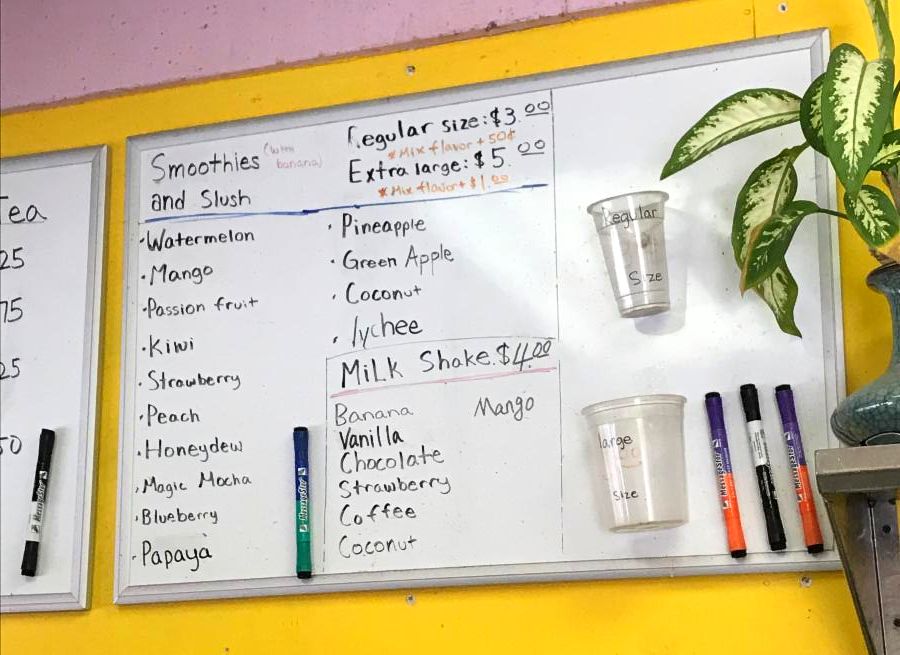 Tea
25
75
25
50
Smoothies (with banana)
and Slush
Regular size: $3.00
*Mix flavor + 50¢
Extra large: $5.00
*Mix flavor + $1.00
·Watermelon
·Mango
·Passion fruit
·Kiwi
·Strawberry
·Peach
·Honeydew
·Magic Mocha
·Blueberry
·Papaya
·Pineapple
·Green Apple
·Coconut
·lychee
MiLK Shake.$4.00
Banana Mango
Vanilla
Chocolate
Strawberry
Coffee
Coconut
Regular
Size
large
size